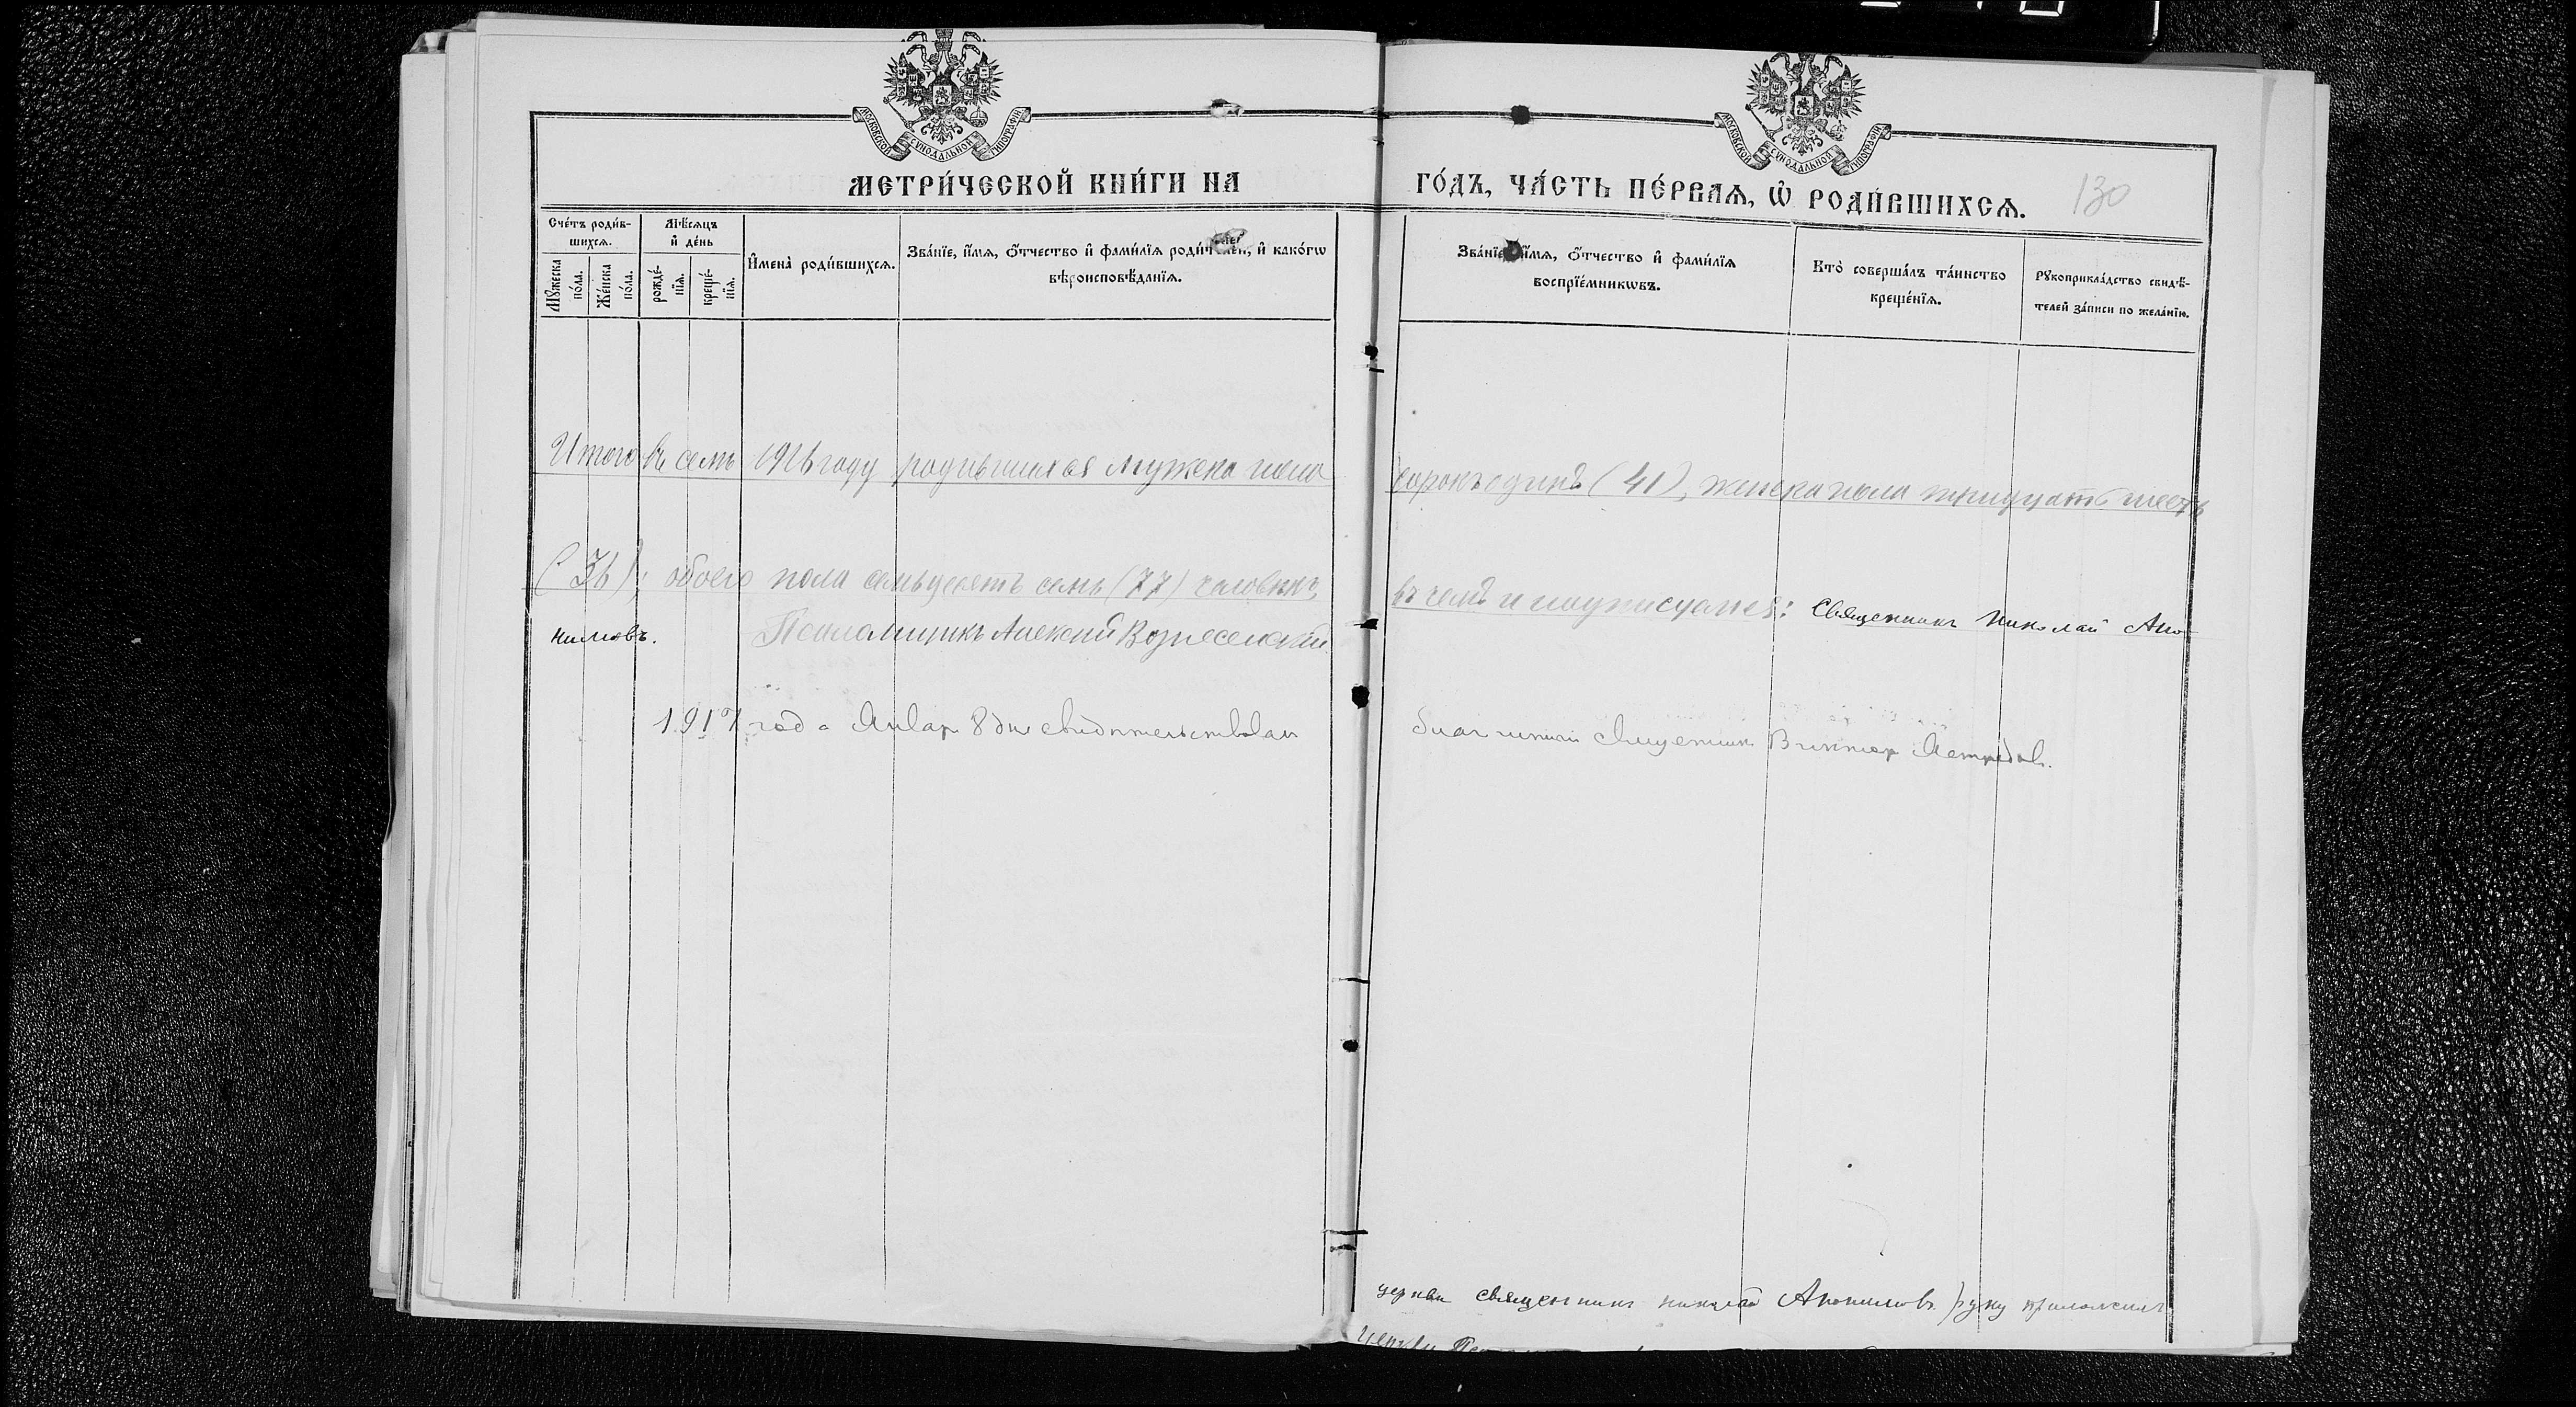 МОСКОВСКОЙ СѴНОДАЛЬНОЙ ТИПОГРАФІИ
МОСКОВСКОЙ СѴНОДАЛЬНОЙ ТИПОГРАФІИ
МЕТРИ́ЧЕСКОЙ КНИ́ГИ НА
ГО́ДЪ, ЧА́СТЬ ПЕ́РВАЯ, Ѡ҆ РОДИ́ВШИХСЯ.
130
Сче́тъ роди́в-
шихся.
Мꙋжеска
по́ла.
Же́нска
по́ла.
Мѣ́сяцъ
и҆ де́нь
рожде́-
нїя.
креще́-
нїя.
И҆мена̀ роди́вшихся.
Зва́нїе, и҆́мя, ѻ҆́тчество и҆ фами́лїя роди́телей, и҆ како́гѡ
вѣроисповѣ́данїя.
Зва́нїе, и҆́мя, ѻ҆́тчество и҆ фами́лїя
воспрїе́мникѡвъ.
Кто̀ соверша́лъ та́инство
креще́нїя.
Рꙋкоприкла́дство свидѣ́-
телей за́писи по жела́нїю.
Итого въ семъ 1916 году родившихся мужска пола
сорокъ одинъ (41), женска пола тридцать шесть
(36); обоего пола семьдесятъ семь (77) человѣкъ,
въ чемъ и подписуемся: Священникъ Николай Апо-
нимовъ. Псаломщикъ Алексій Вознесенскій
1917 года Января 8 дня свидѣтельствовалъ
благочинный священникъ Викторъ
церкви священникъ Николай руку приложилъ
церкви